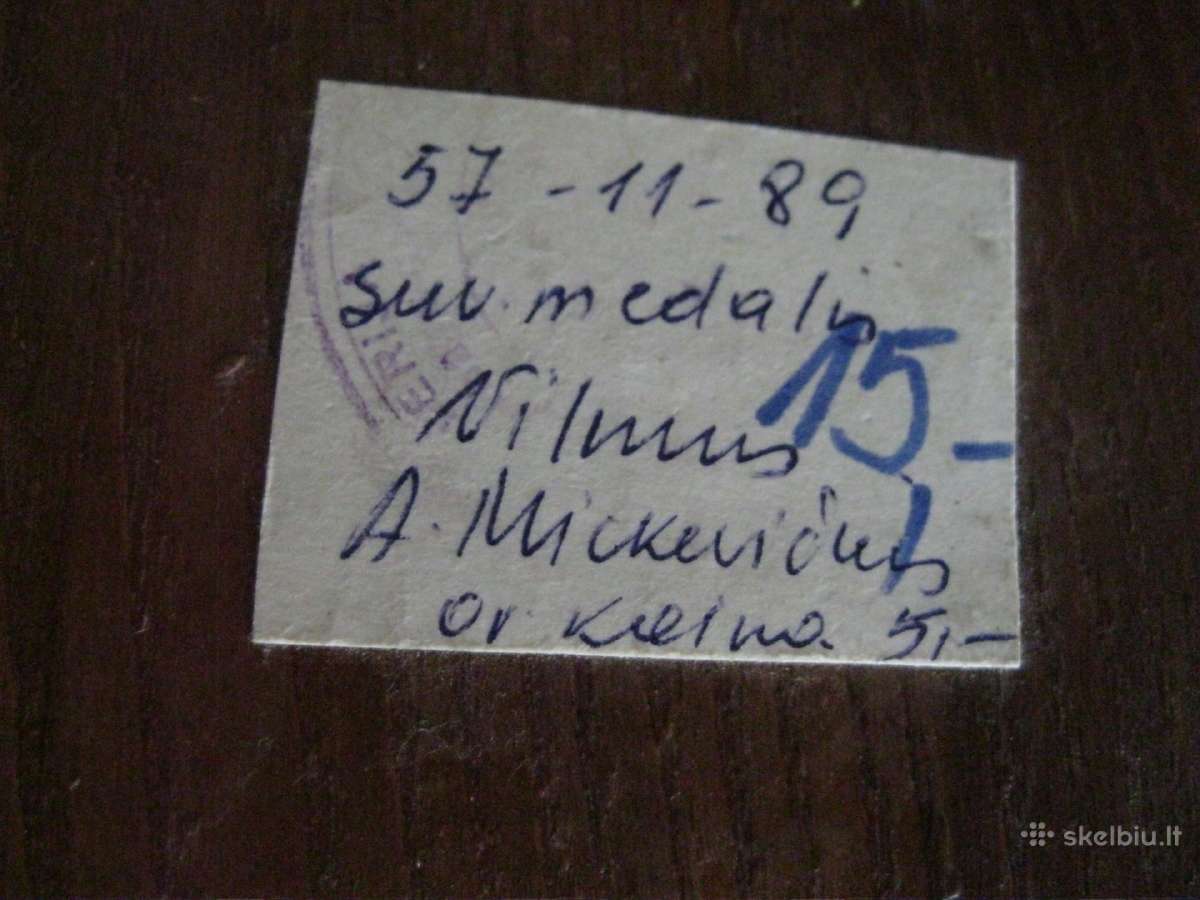 57-11-89
Suv. medalis
15,-
Vilnius
A. Mickevičius
or kaina 5,-
ERI
skelbiu.lt